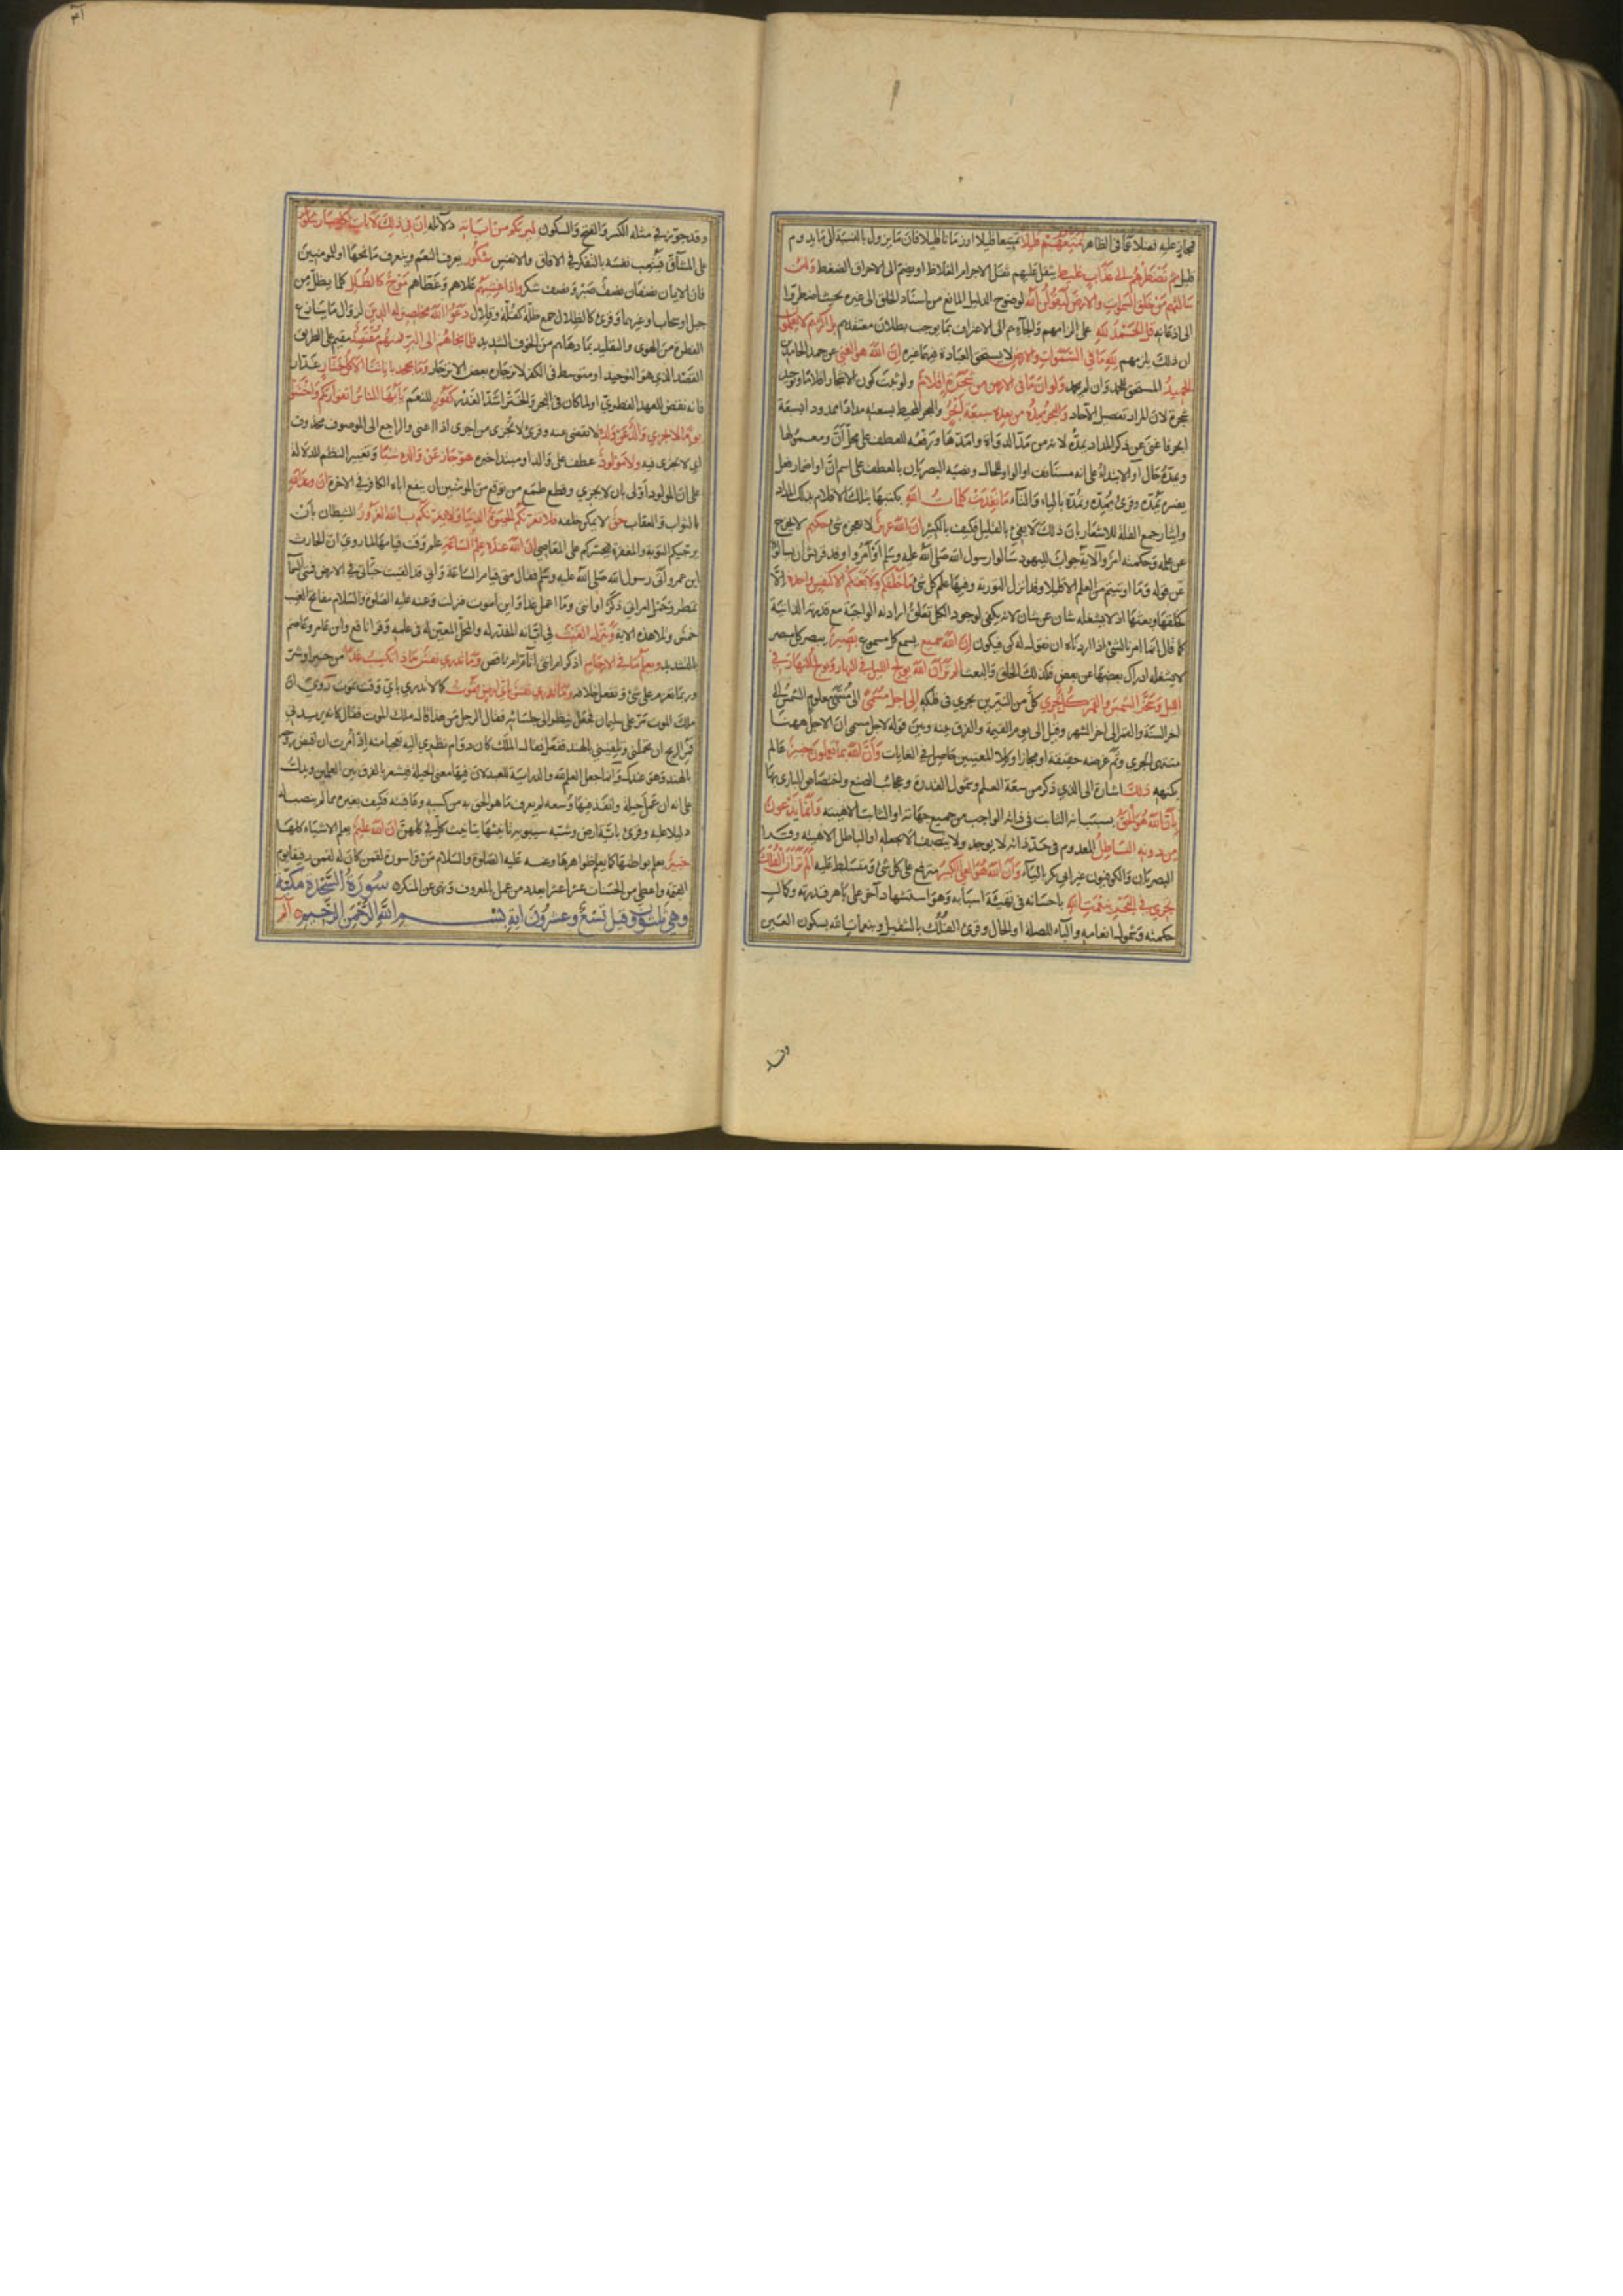 فمجاز عليه فضلا عما فى الظاهر نمتعهم قليلا تمتيعا قليلا او زمانا قليلا فان ما يزول بالنسبة الى ما يدوم
قليل ثم نضطرهم الى عذاب غليظ يثقل عليهم ثقل الاجرام الغلاظ او يضم الى الاحراق الضغط ولئن
سألتهم من خلق السموات والارض ليقولن الله لوضوح الدليل المانع من اسناد الخلق الى غيره بحيث اضطروا
الى اذعانه قل الحمد لله على الزامهم والجآئهم الى الاعتراف بما يوجب بطلان معتقدهم بل اكثرهم لا يعلمون
ان ذلك يلزمهم لله ما فى السموات والارض لا يستحق العبادة فيهما غيره ان الله هو الغنى عن حمد الحامدين
الحميد المستحق للحمد وان لم يحمد ولو ان ما فى الارض من شجرة اقلام ولو ثبت كون الاشجار اقلاما وتوحيد
شجرة لان المراد تفصيل الآحاد والبحر يمده من بعده سبعة ابحر والبحر المحيط بسعته مدادا ممدودا بسبعة
ابحر فاغنى عن ذكر المداد يمده لانه من مد الدواة وامدها ورفعه للعطف على محل ان ومعمولها
ويمده حال او الابتداء على انه مستانف او الواو للحال ونصبه البصريان بالعطف على اسم ان او اضمار فعل
يفسره يمده وقرئ يمده وتمده بالياء والتاء ما نفدت كلمات الله بكتبها بتلك الاقلام بذلك المداد
وايثار جمع القلة للاشعار بان ذلك لا يفي بالقليل فكيف بالكثير ان الله عزيز لا يعجزه شئ حكيم لا يخرج
عن علمه وحكمته امر والآية جواب لليهود سالوا رسول الله صلى الله عليه وسلم او امروا وفد قريش ان يسالوه
عن قوله وما اوتيتم من العلم الا قليلا وقد انزل التورية وفيها علم كل شئ ما خلقكم ولا بعثكم الا كنفس واحدة الا
كخلقها وبعثها اذ لا يشغله شان عن شان لانه يكفى لوجود الكل تعلق ارادته الواجبة مع قدرته الذاتية
كما قال انما امرنا لشئ اذا اردناه ان نقول له كن فيكون ان الله سميع يسمع كل مسموع بصير يبصر كل مبصر
لا يشغله ادراك بعضها عن بعض فكذلك الخلق والبعث الم تر ان الله يولج الليل فى النهار ويولج النهار فى
الليل وسخر الشمس والقمر كل يجري كل من النيرين يجري فى فلكه الى اجل مسمى الى منتهى معلوم الشمس الى
اخر السنة والقمر الى اخر الشهر وقيل الى يوم القيمة والفرق بينه وبين قوله لاجل مسمى ان الاجل ههنا
منتهى الجري وثم غرضه حقيقة او مجازا وكلا المعنيين حاصل فى الغايات وان الله بما تعملون خبير عالم
بكنهه ذلك اشارة الى الذي ذكر من سعة العلم وشمول القدرة وعجائب الصنع واختصاص البارى بها
بان الله هو الحق بسبب انه الثابت فى ذاته الواجب من جميع جهاته او الثابت الاهيته وان ما يدعون
من دونه الباطل المعدوم فى حد ذاته لا يوجد ولا يتصف الا بجعله او الباطل الاهيته وقرأ
البصريان والكوفيون غير ابى بكر بالياء وان الله هو العلي الكبير مترفع على كل شئ ومتسلط عليه الم تر ان الفلك
تجري فى البحر بنعمت الله باحسانه فى تهيئة اسبابه وهو استشهاد آخر على باهر قدرته وكمال
حكمته وشمول انعامه والباء للصلة او الحال وقرئ الفلك بالتثقيل وبنعمات الله بسكون العين
وقد
وقد جوز فى مثله الكسر والفتح والسكون ليريكم من اياته دلائله ان فى ذلك لآيات لكل صبار
على المشاق فيتعب نفسه بالتفكر فى الافاق والانفس شكور يعرف النعم ويتعرف مانحها او للمؤمنين
فان الايمان نصفان نصف صبر ونصف شكر واذا غشيهم علاهم وغطاهم موج كالظلل كما يظل من
جبل او سحاب او غيرهما وقرئ كالظلال جمع ظلة كقلة وقلال دعوا الله مخلصين له الدين لزوال ما ينازع
الفطرة من الهوى والتقليد بما دهاهم من الخوف الشديد فلما نجاهم الى البر فمنهم مقتصد مقيم على الطريق
القصد الذي هو التوحيد او متوسط فى الكفر لانزجاره بعض الانزجار وما يجحد باياتنا الا كل ختار غدار
فانه نقض للعهد الفطري او لما كان فى البحر والختر اشد الغدر كفور للنعم يا ايها الناس اتقوا ربكم واخشوا
يوما لا يجزي والد عن ولده لا يقضى عنه وقرئ لا يجزى من اجزى اذا اغنى والراجع الى الموصوف محذوف
اي لا يجزى فيه ولا مولود عطف على والد او مبتدا خبره هو جاز عن والده شيئا وتغيير النظم للدلالة
على ان المولود اولى بان لا يجزي وقطع طمع من توقع من المؤمنين ان ينفع اباه الكافر فى الاخرة ان وعد الله
بالثواب والعقاب حق لا يمكن خلفه فلا تغرنكم الحيوة الدنيا ولا يغرنكم بالله الغرور الشيطان بان
يرجيكم التوبة والمغفرة فيجسركم على المعاصي ان الله عنده علم الساعة علم وقت قيامها لما روي ان الحارث
ابن عمرو اتى رسول الله صلى الله عليه وسلم فقال متى قيام الساعة وانى قد القيت حباتى فى الارض فمتى السماء
تمطر وحمل امراتي ذكر او انثى وما اعمل غدا واين اموت فنزلت وعنه عليه الصلوة والسلام مفاتح الغيب
خمس وتلا هذه الاية وينزل الغيث فى ابانه المقدر له والمحل المعين له فى علمه وقرا نافع وابن عامر وعاصم
بالتشديد ويعلم ما فى الارحام اذكر ام انثى اتام ام ناقص وما تدري نفس ماذا تكسب غدا من خير او شر
وربما تعزم على شئ وتفعل خلافه وما تدري نفس باي ارض تموت كما لا تدري باي وقت تموت روي ان
ملك الموت مر على سليمان فجعل ينظر الى رجل من جلسائه فقال الرجل من هذا قال ملك الموت فقال كانه يريدني
فمر الريح ان تحملني وتلقيني بالهند ففعل فقال الملك كان دوام نظري اليه تعجبا منه اذ امرت ان اقبض روحه
بالهند وهو عندك وانما جعل العلم لله والدراية للعبد لان فيها معنى الحيلة فيشعر بالفرق بين العلمين ويدل
على انه ان عمل حيلة وانفذ فيها وسعه لم يعرف ما هو الحق به من كسبه وعاقبته فكيف بغيره مما لم ينصب له
دليلا عليه وقرئ باية ارض وشبه سيبويه تانيثها بتانيث كل فى كلهن ان الله عليم يعلم الاشياء كلها
خبير يعلم بواطنها كما يعلم ظواهرها وعنه عليه الصلوة والسلام من قرا سورة لقمن كان له لقمن رفيقا يوم
القيمة واعطى من الحسنات عشرا عشرا بعدد من عمل بالمعروف ونهى عن المنكر سورة السجدة مكية
وهي ثلثون وقيل تسع وعشرون اية بسم الله الرحمن الرحيم الم